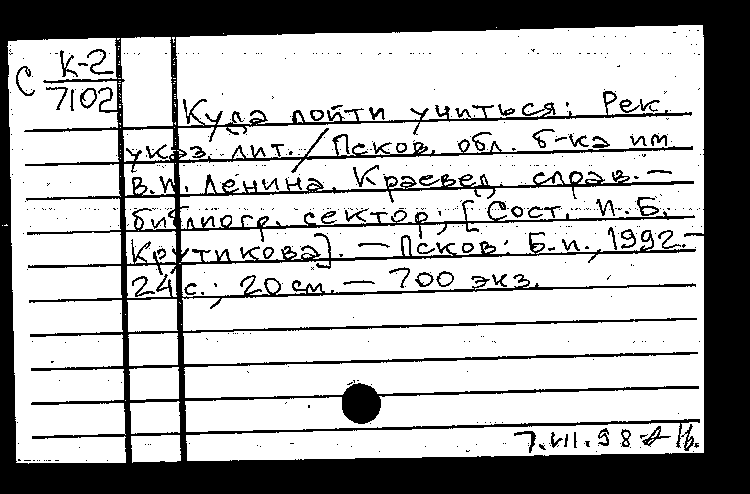 С К-2
7102
Куда пойти учиться: Рек.
указ. лит. / Псков. обл. б-ка им.
В.И. Ленина. Краевед. справ.—
библиогр. сектор; [Сост. И.Б.
Крутикова]. — Псков: Б.и., 1992.—
24 с.; 20 см. — 700 экз.
7.VII.98